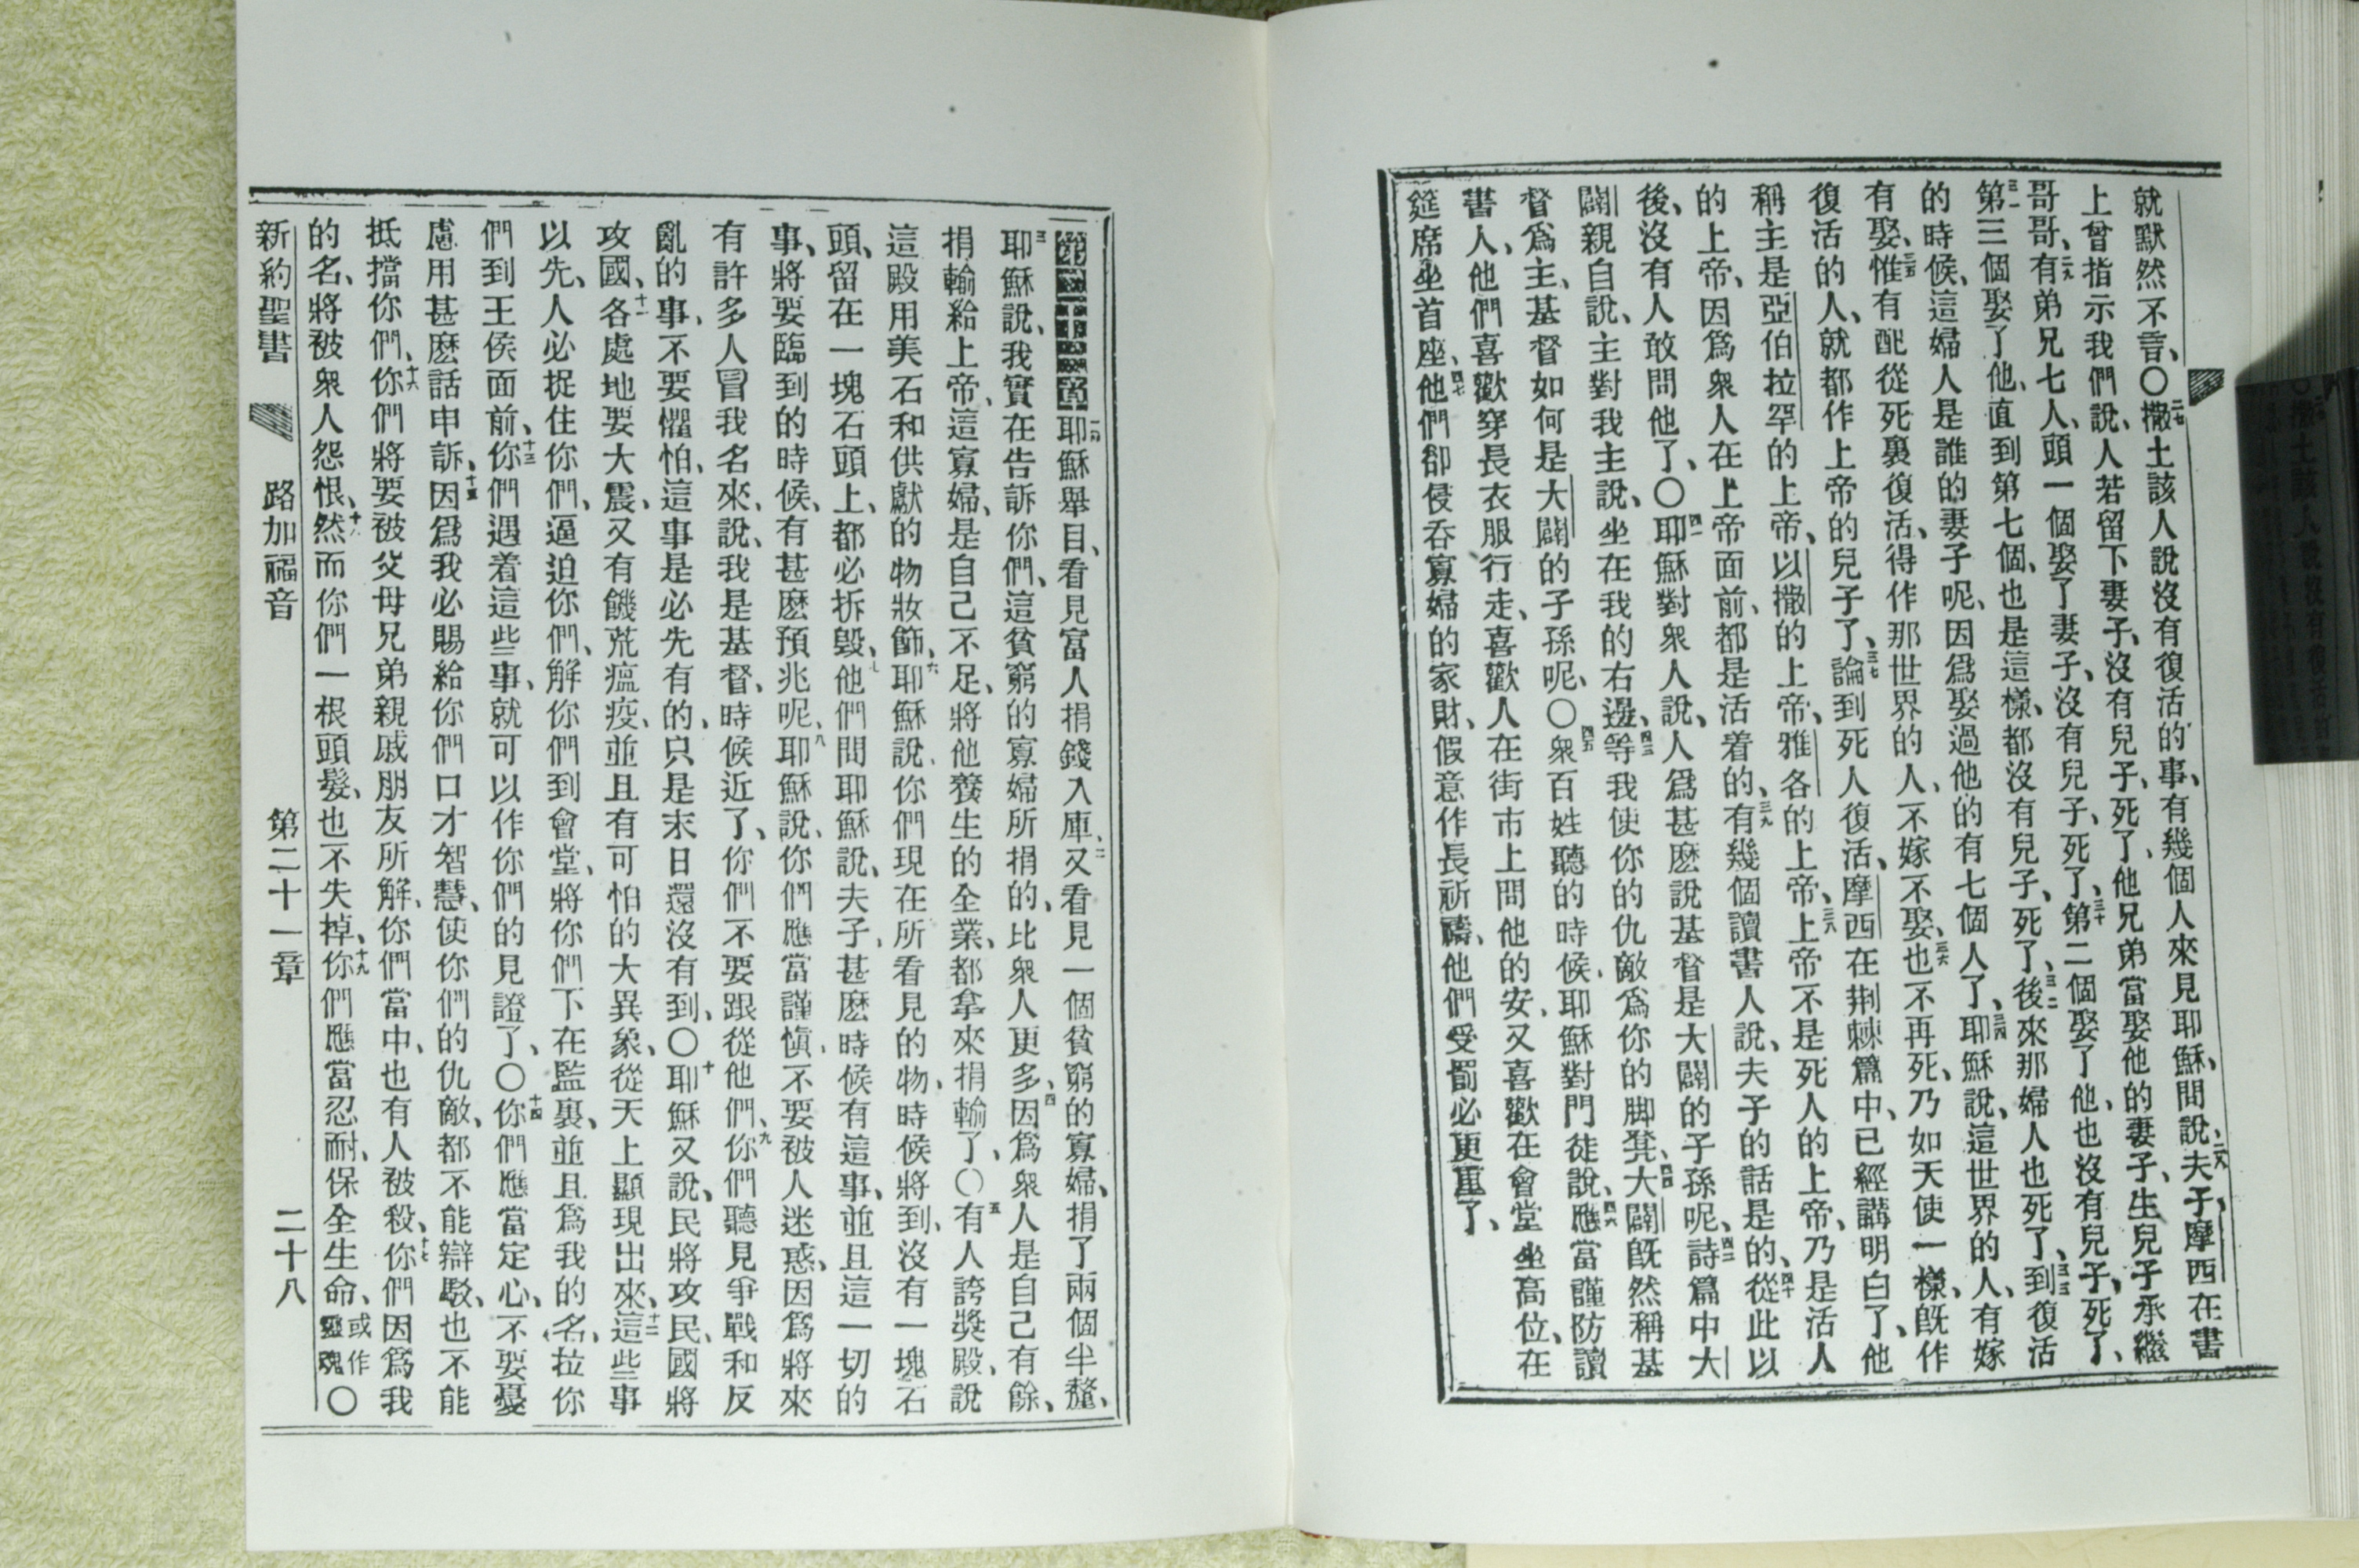 就默然不言、○二七撒土該人說沒有復活的事、有幾個人來見耶穌、問說、二八夫子、摩西在書
上曾指示我們說、人若留下妻子、沒有兒子、死了、他兄弟當娶他的妻子、生兒子承繼
哥哥、二九有弟兄七人、頭一個娶了妻子、沒有兒子、死了、三十第二個娶了他、也沒有兒子、死了、
三一第三個娶了他、直到第七個、也是這樣、都沒有兒子、死了、三二後來那婦人也死了、三三到復活
的時候、這婦人是誰的妻子呢、因爲娶過他的有七個人了、三四耶穌說、這世界的人、有嫁
有娶、三五惟有配從死裏復活、得作那世界的人、不嫁不娶、三六也不再死、乃如天使一樣、旣作
復活的人、就都作上帝的兒子了、三七論到死人復活、摩西在荆棘篇中、已經講明白了、他
稱主是亞伯拉罕的上帝、以撒的上帝、雅各的上帝、三八上帝不是死人的上帝、乃是活人
的上帝、因爲衆人在上帝面前、都是活着的、三九有幾個讀書人說、夫子的話是的、四十從此以
後、沒有人敢問他了、○四一耶穌對衆人說、人爲甚麽說基督是大闢的子孫呢、四二詩篇中大
闢親自說、主對我主說、坐在我的右邊、四三等我使你的仇敵爲你的脚凳、四四大闢旣然稱基
督爲主、基督如何是大闢的子孫呢、○四五衆百姓聽的時候、耶穌對門徒說、四六應當謹防讀
書人、他們喜歡穿長衣服行走、喜歡人在街市上問他的安、又喜歡在會堂坐高位、在
筵席坐首座、四七他們卻侵吞寡婦的家財、假意作長祈禱、他們受罰必更重了、
第二十一章一耶穌舉目、看見富人捐錢入庫、二又看見一個貧窮的寡婦、捐了兩個半釐、
三耶穌說、我實在告訴你們、這貧窮的寡婦所捐的、比衆人更多、四因爲衆人是自己有餘、
捐輸給上帝、這寡婦、是自己不足、將他養生的全業、都拿來捐輸了、○五有人誇獎殿、說
這殿用美石和供獻的物妝飾、六耶穌說、你們現在所看見的物、時候將到、沒有一塊石
頭、留在一塊石頭上、都必拆毀、七他們問耶穌說、夫子、甚麽時候有這事、並且這一切的
事、將要臨到的時候、有甚麽預兆呢、八耶穌說、你們應當謹愼、不要被人迷惑、因爲將來
有許多人冒我名來、說、我是基督、時候近了、你們不要跟從他們、九你們聽見爭戰和反
亂的事、不要懼怕、這事是必先有的、只是末日還沒有到、○十耶穌又說、民將攻民、國將
攻國、十一各處地要大震、又有饑荒瘟疫、並且有可怕的大異象、從天上顯現出來、十二這些事
以先、人必捉住你們、逼迫你們、解你們到會堂、將你們下在監裏、並且爲我的名、拉你
們到王侯面前、十三你們遇着這些事、就可以作你們的見證了、○十四你們應當定心、不要憂
慮用甚麽話申訴、十五因爲我必賜給你們口才智慧、使你們的仇敵、都不能辯駁、也不能
抵擋你們、十六你們將要被父母兄弟親戚朋友所解、你們當中、也有人被殺、十七你們因爲我
的名、將被衆人怨恨、十八然而你們一根頭髮、也不失掉、十九你們應當忍耐、保全生命、或作靈魂○
新約聖書 路加福音 第二十一章 二十八